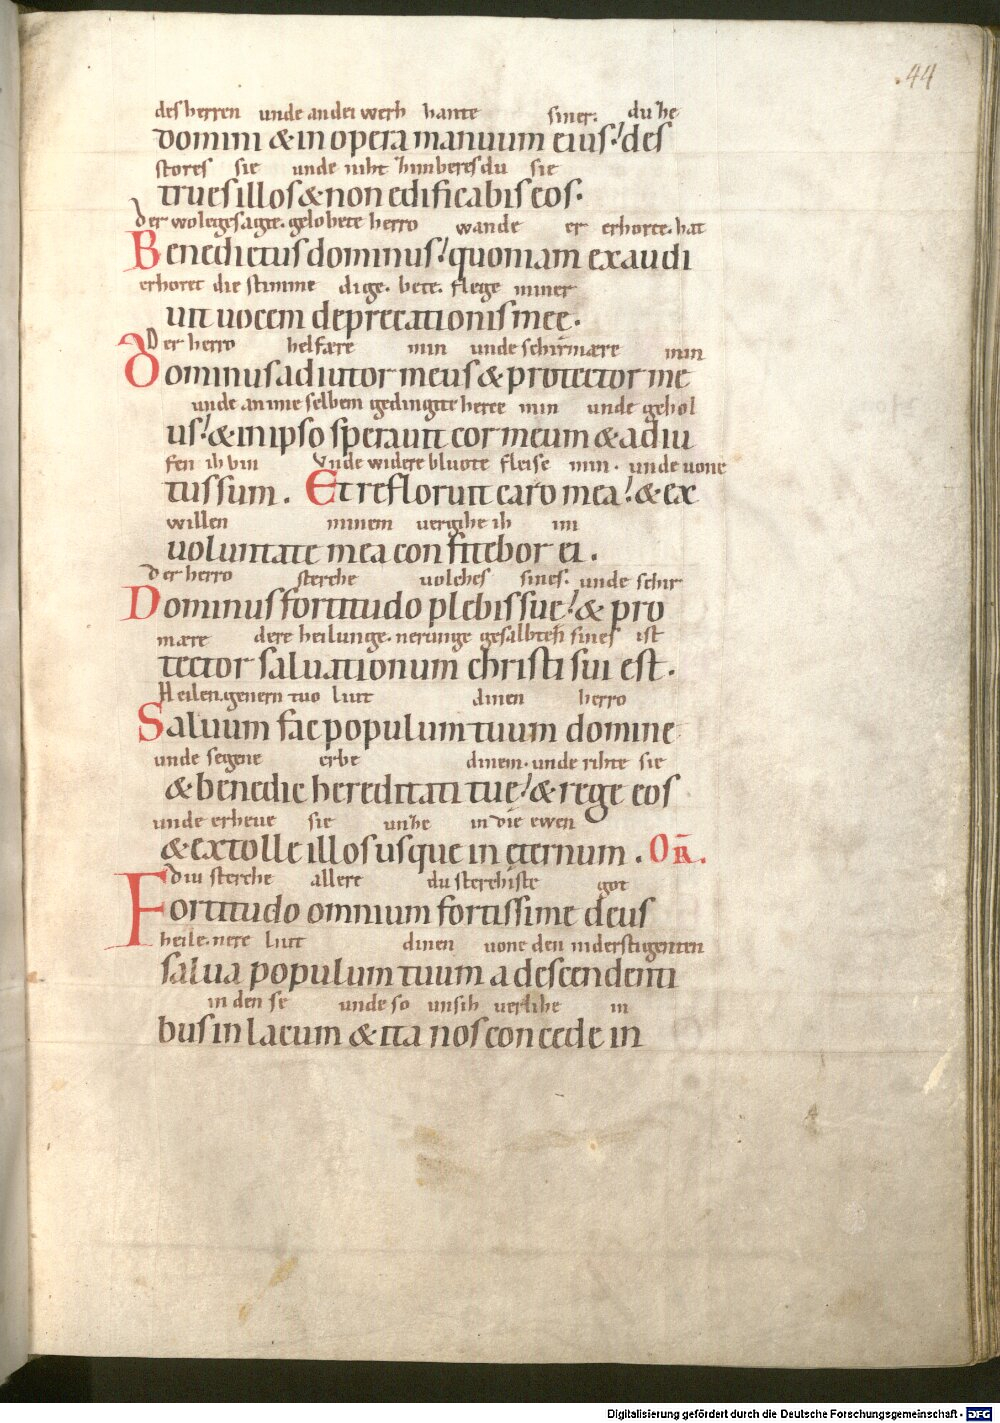 44
des herren unde andei werh hante siner. du he
domini & in opera manuum eius. des
stores sie unde niht himberes du sie
trues illos & non edificabis eos.
der wolegesagte. gelobete herro wande er erhorte. hat
Benedictus dominus. quoniam exaudi
erhoret die stimme dige. bete. flege miner
uit uocem deprecationis mee.
Der herro helfære min unde schirmære min
Dominus adiutor meus & protector me
unde an ime selbem gedingite herce min unde gehol
us. & in ipso sperauit cor meum & adiu
fen ih bin Unde widere bluote fleise min. unde uone
tus sum. Et refloruit caro mea. & ex
willen minem uergihe ih im
uoluntate mea confitebor ei.
der herro sterche uolches sines. unde schir
Dominus fortitudo plebis sue. & pro
mære dere heilunge. nerunge gesalbten sines ist
tector saluationum christi sui est.
Heilen. genern tuo liut dinen herro
Saluum fac populum tuum domine
unde segene erbe dinem. unde rihte sie
& benedic hereditati tue. & rege eos
unde erheue sie unhe in die ewen
& extolle illos usque in eternum. OR̄.
diu sterche allere du sterchiste got
Fortitudo omnium fortissime deus
heile. nere liut dinen uone den niderstigenten
salua populum tuum a descendenti
in den se unde so unsih uerlihe in
bus in lacum & ita nos concede in
Digitalisierung gefördert durch die Deutsche Forschungsgemeinschaft - DFG